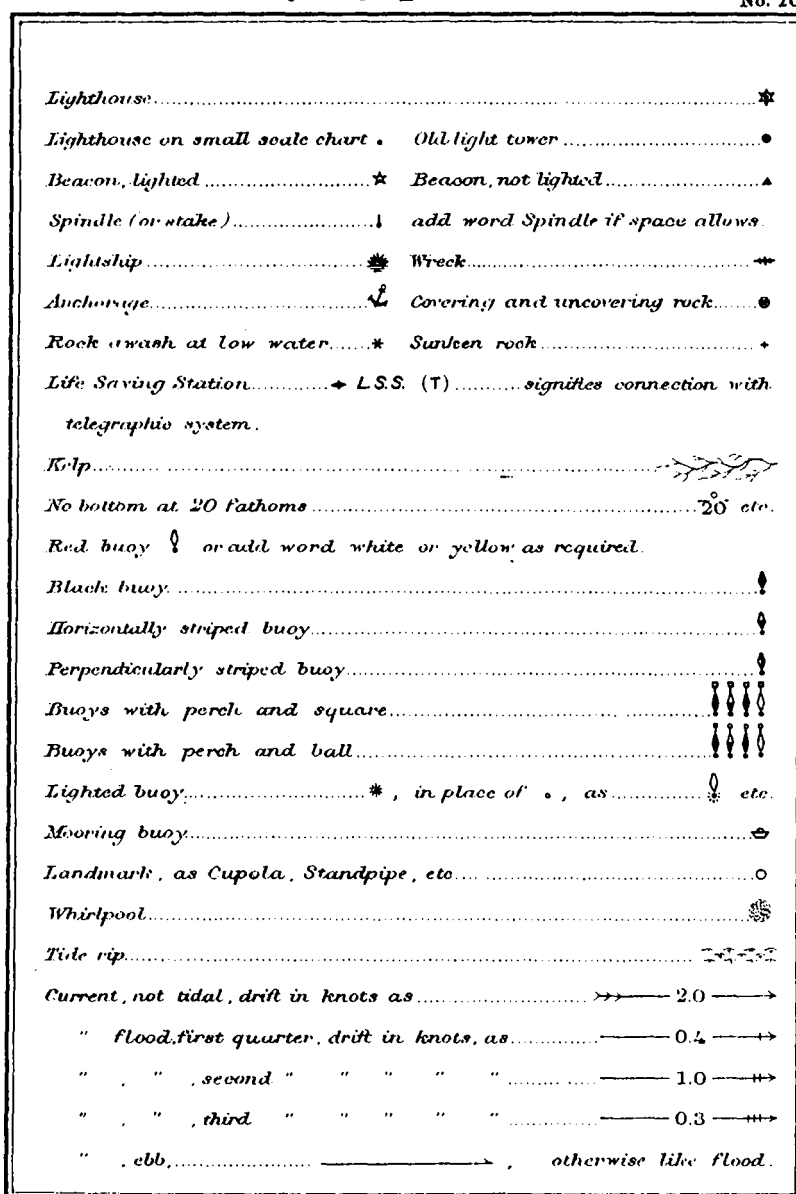 No. 20
Lighthouse
Lighthouse on small scale chart . Old light tower
Beacon, lighted Beacon, not lighted
Spindle (or stake) add word Spindle if space allows.
Lightship Wreck
Anchorage Covering and uncovering rock
Rock awash at low water Sunken rock
Life Saving Station L.S.S. (T) signifies connection with
telegraphic system.
Kelp
No bottom at 20 fathoms 20 etc.
Red buoy or add word white or yellow as required.
Black buoy
Horizontally striped buoy
Perpendicularly striped buoy
Buoys with perch and square
Buoys with perch and ball
Lighted buoy , in place of , as etc.
Mooring buoy
Landmark, as Cupola, Standpipe, etc
Whirlpool
Tide rip
Current, not tidal, drift in knots as 2.0
" flood, first quarter, drift in knots, as 0.4
" , " , second " " " " " 1.0
" , " , third " " " " " 0.3
" , ebb, , otherwise like flood.